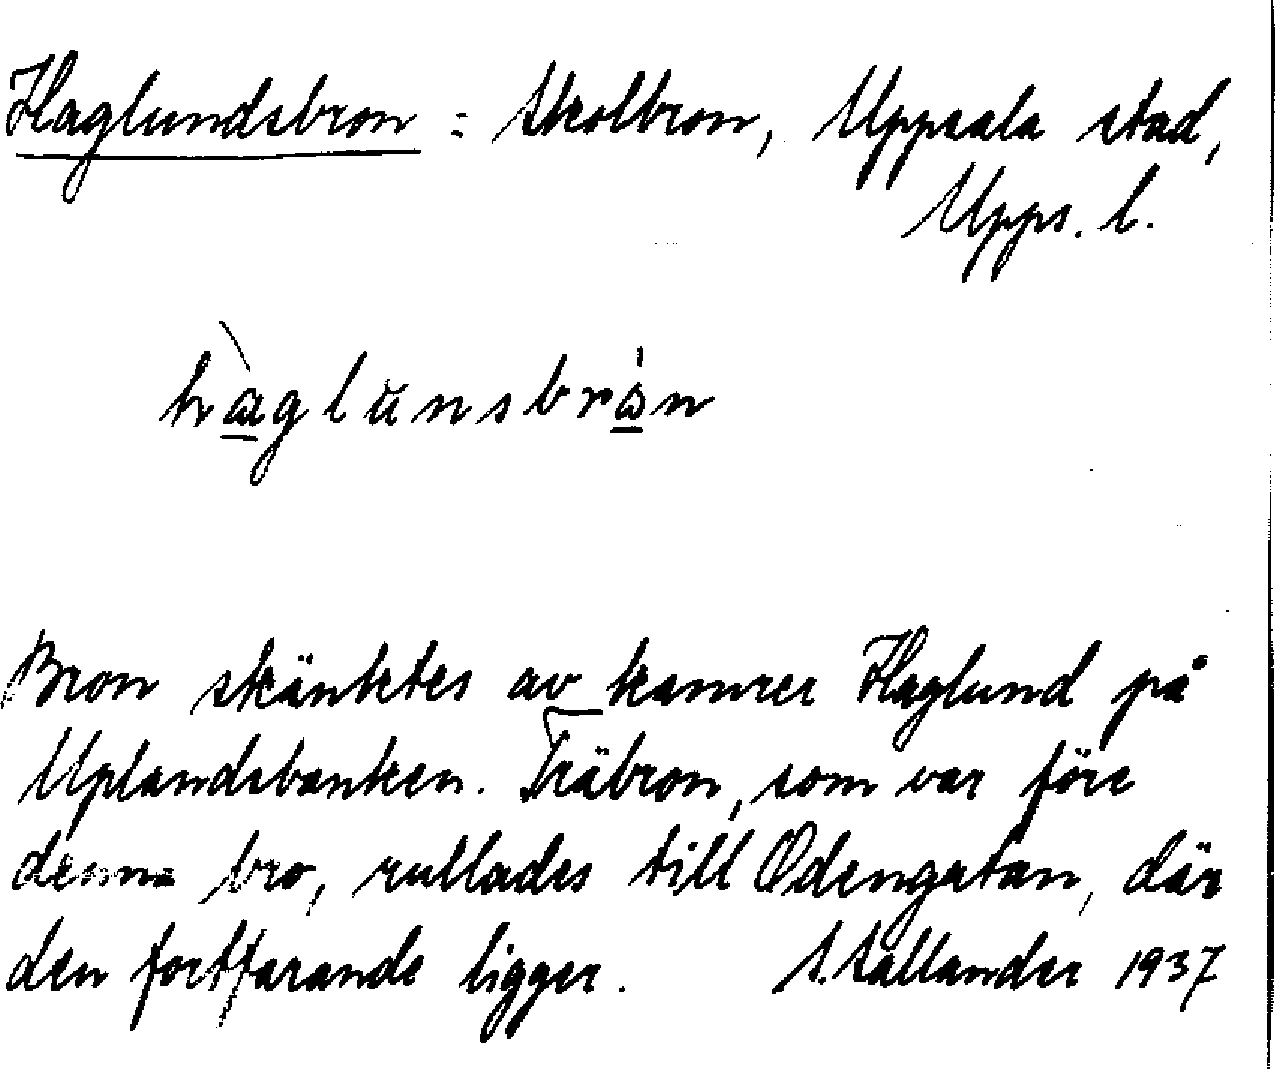 Haglundsbron = Skolbron, Uppsala stad,
Upps. l.
hàglŭnsbrån
Bron skänktes av kamrer Haglund på
Uplandsbanken. Träbron, som var före
denna bro, rullades till Odengatan, där
den fortfarande ligger. S. Källander 1937